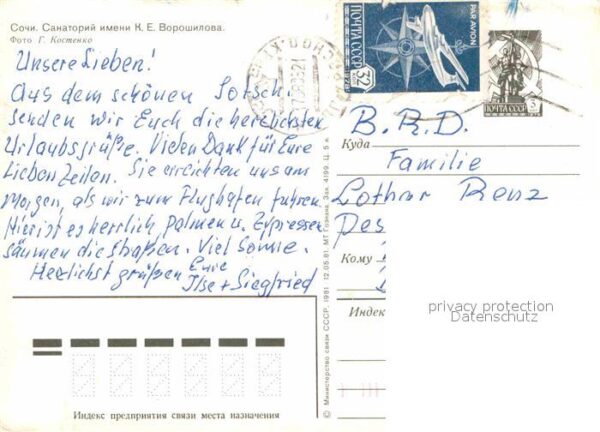 Сочи. Санаторий имени К. Е. Ворошилова.
Фото Г. Костенко
Unsere Lieben!
Aus dem schönen Sotschi
senden wir Euch die herzlichsten
Urlaubsgrüße. Vielen Dank für Eure
lieben Zeilen. Sie erreichten uns am
Morgen, als wir zum Flughafen fuhren.
Hier ist es herrlich, Palmen u. Zypressen
säumen die Straßen. Viel Sonne.
Herzlichst grüßen Eure
Ilse + Siegfried
Индекс предприятия связи места назначения
© Министерство связи СССР. 1981 12.05.81. МТ Гознака. Зак. 4199. Ц. 5 к.
PAR AVION
ПОЧТА СССР
32
ПОЧТА СССР
B.R.D.
Куда
Familie
Lothar Renz
Des
Кому
Индек
privacy protection
Datenschutz